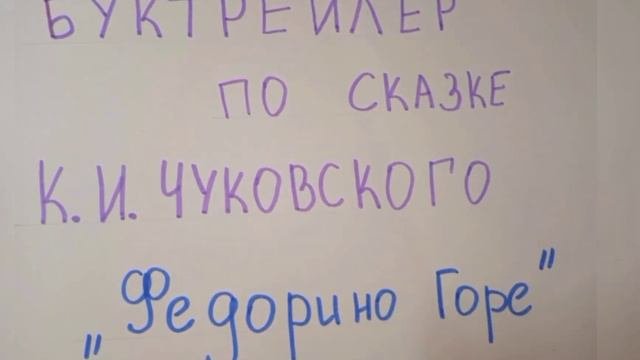 БУКТРЕЙЛЕР
ПО СКАЗКЕ
К. И. ЧУКОВСКОГО
„Федорино Горе"